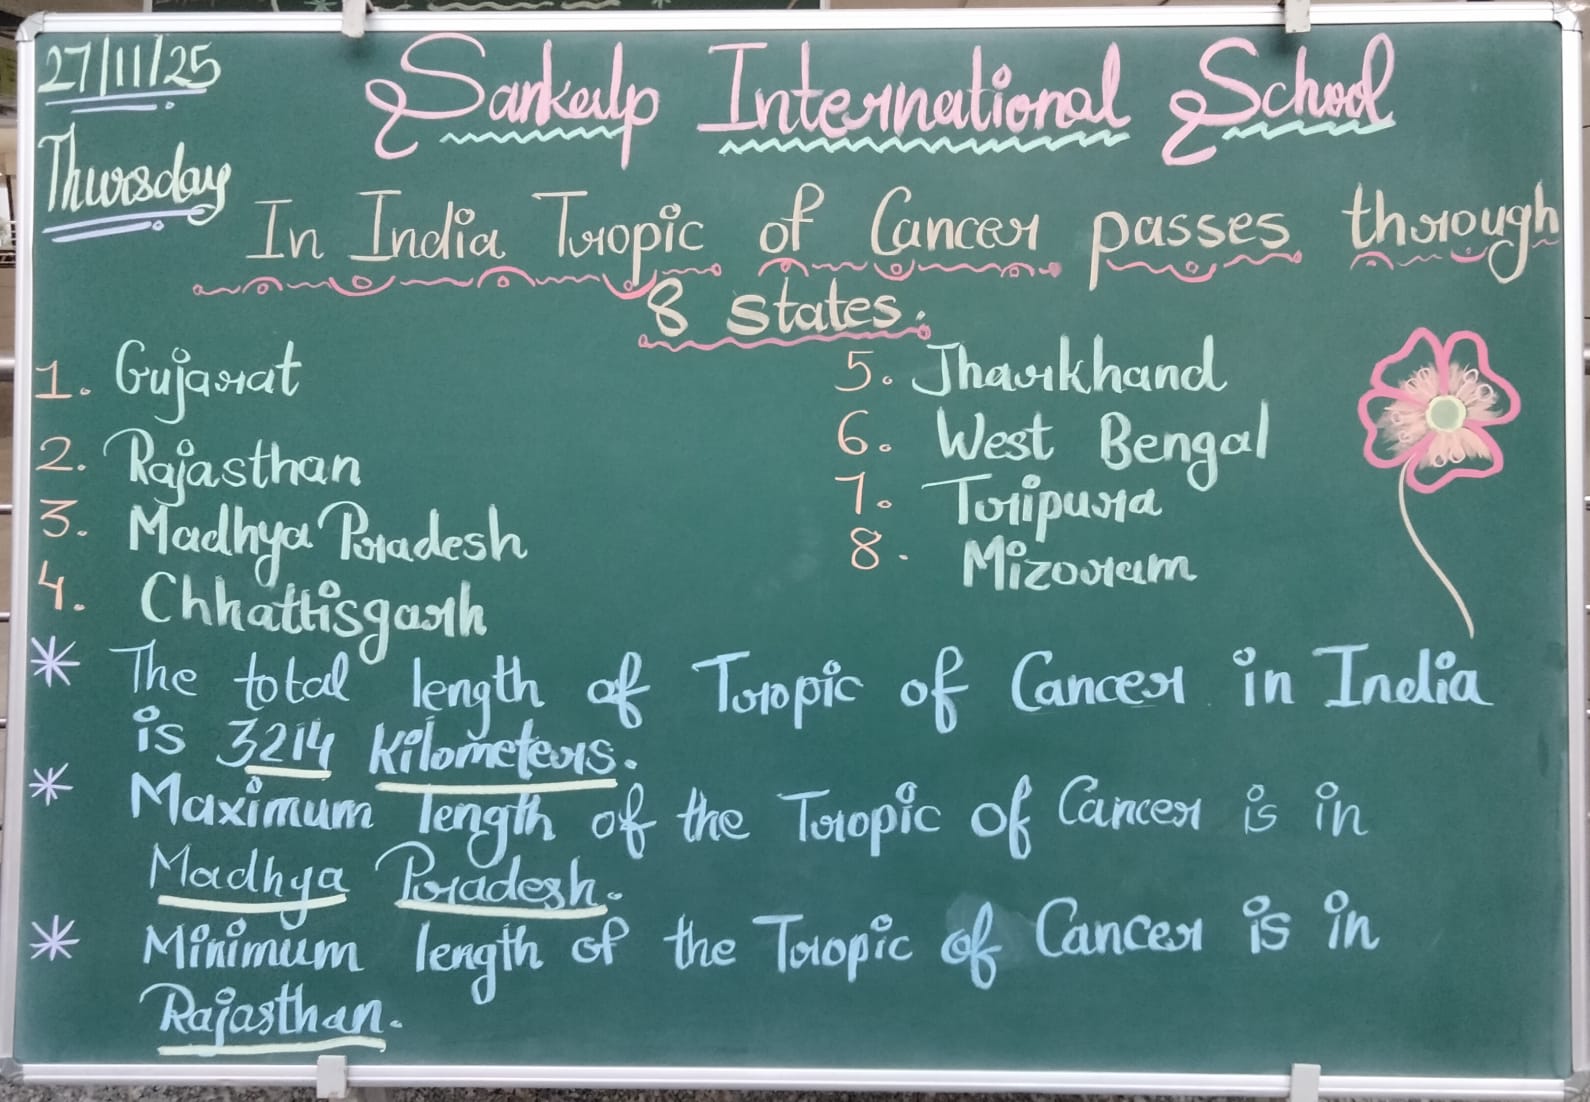 27/11/25
Thursday
Sankalp International School
In India Tropic of Cancer passes through
8 states.
1. Gujarat
2. Rajasthan
3. Madhya Pradesh
4. Chhattisgarh
5. Jharkhand
6. West Bengal
7. Tripura
8. Mizoram
* The total length of Tropic of Cancer in India
is 3214 kilometers.
* Maximum length of the Tropic of Cancer is in
Madhya Pradesh.
* Minimum length of the Tropic of Cancer is in
Rajasthan.